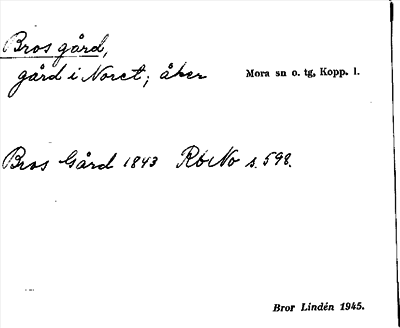 Bros gård,
gård i Noret; åker Mora sn o. tg, Kopp. l.
Bros Gård 1843 RbNo s. 598.
Bror Lindén 1945.